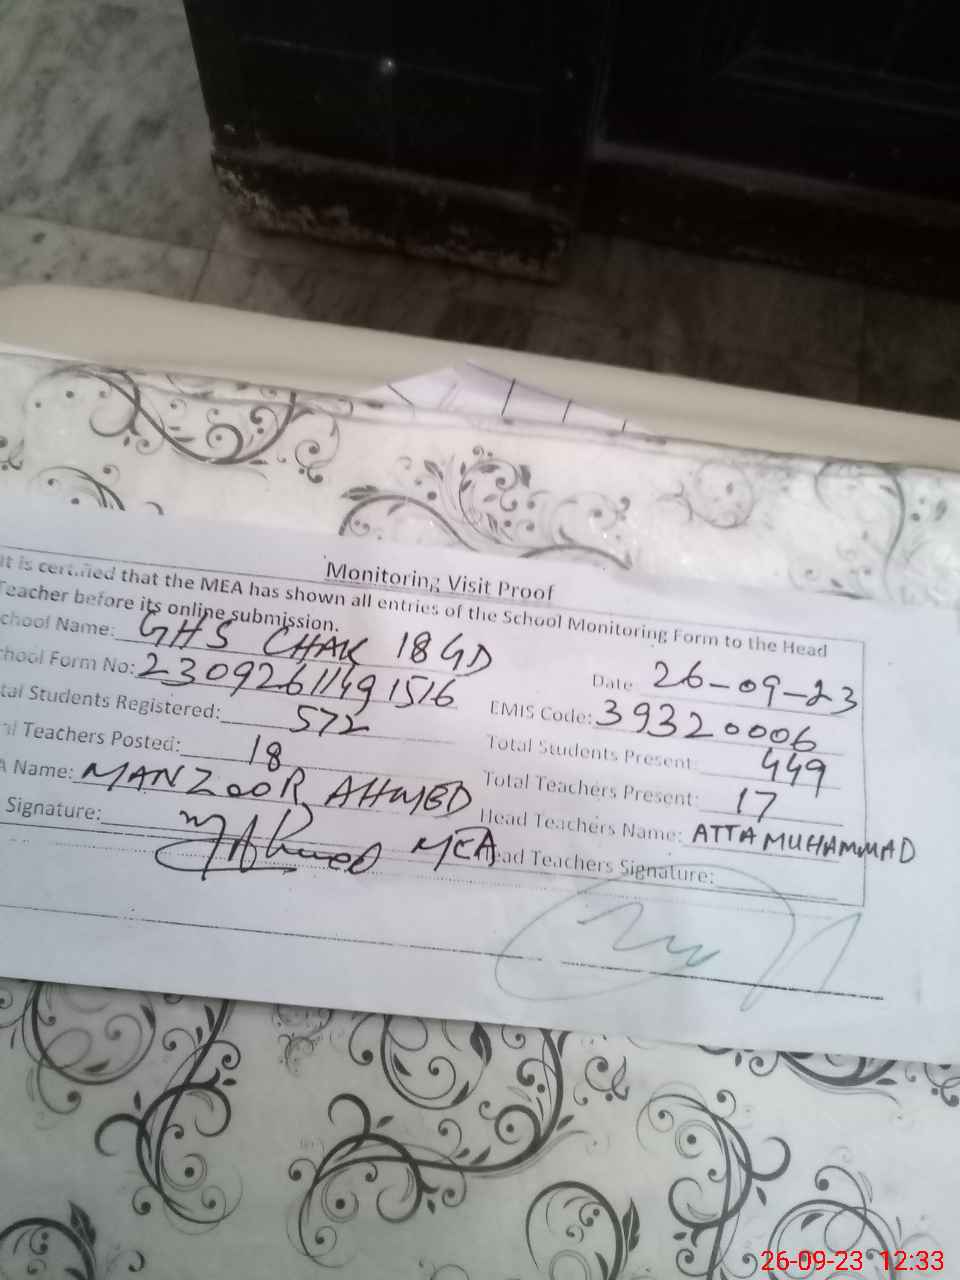 Monitoring Visit Proof
It is certified that the MEA has shown all entries of the School Monitoring Form to the Head
Teacher before its online submission.
chool Name: GHS CHAK 18 GD
Date 26-09-23
chool Form No: 23092611491516
EMIS Code: 39320006
tal Students Registered: 572
Total Students Present: 449
al Teachers Posted: 18
Total Teachers Present: 17
A Name: MANZOOR AHMED
Head Teachers Name: ATTA MUHAMMAD
Signature: MAhmed MEA
ead Teachers Signature:
26-09-23 12:33